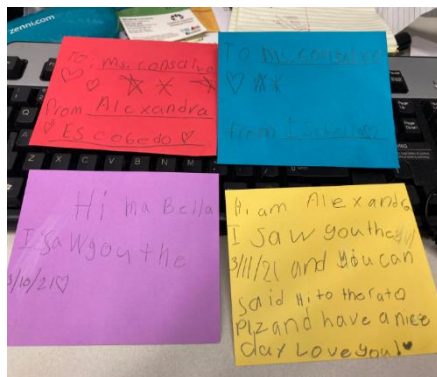 zenni.com
To, Ms. Consalvo
from Alexandra
Escobedo
To Ms. Consalvo
from
Hi. ma Bella
I saw you the
3/10/21
Hi am Alexandra
I saw you the
3/11/21 and you can
said Hi to the rato
Plz and have a nice
day Love you!